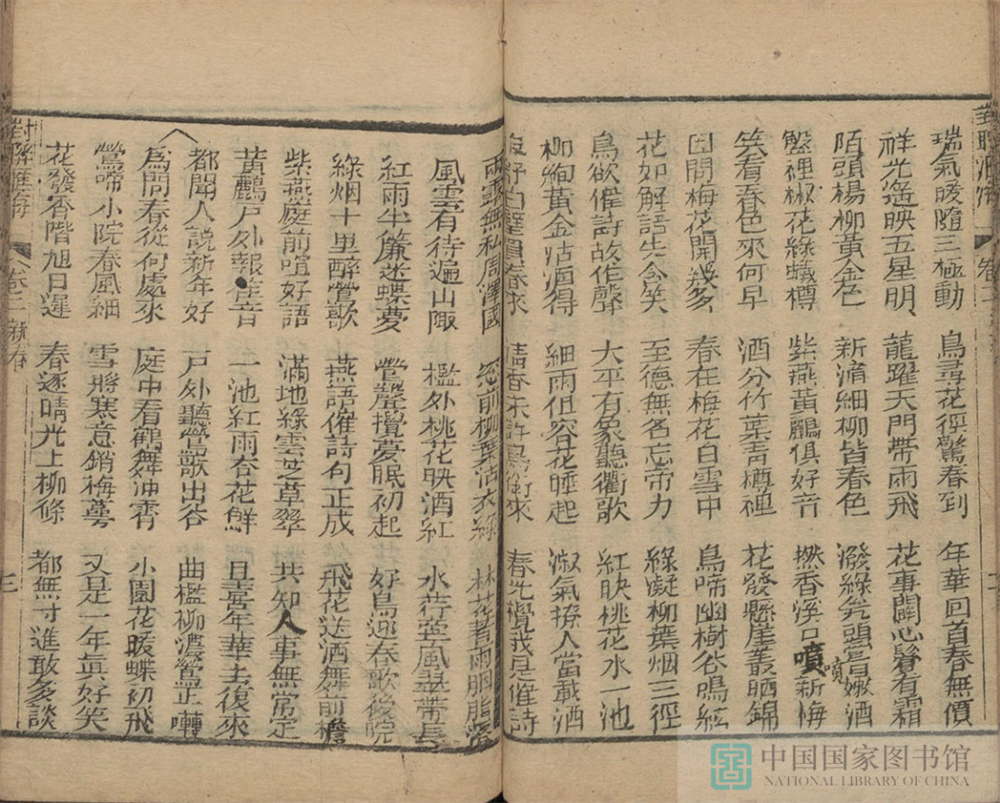 對聯滙海 卷二
瑞氣暖隨三極動 鳥尋花徑驚春到 年華回首春無價
祥光遙映五星明 龍躍天門帶雨飛 花事關心鬢有霜
陌頭楊柳黃金色 新滴細柳皆春色 潑綠頭嘗嫩酒
盤裡椒花綠蟻樽 紫燕黃鸝俱好音 撚香溪口噴新梅
笑看春色來何早 酒分竹葉青樽裡 花發懸崖叢晒錦
因問梅花開幾多 春在梅花白雪中 鳥啼幽樹谷鳴紅
花如解語先含笑 至德無名忘帝力 綠凝柳葉烟三徑
鳥欲催詩故作聲 大平有象聽衢歌 紅映桃花水一池
柳絢黃金沽酒得 細雨但容花睡起 淑氣撩人當載酒
舒白璧買春來 清香未許鳥銜來 春光攪我是催詩
雨露無私周澤國 窓前柳葉沾衣綠 林花著雨胭脂濕
風雲有待遍山陬 檻外桃花映酒紅 水荇牽風翠帶長
紅雨半簾迷蝶夢 鶯聲攪夢眠初起 好鳥迎春歌後院
綠烟十里醉鶯歌 燕語催詩句正成 飛花送酒舞前檐
柴燕庭前喧好語 滿地綠雲芝草翠 共知人事無常定
黃鸝戶外報佳音 一池紅雨杏花鮮 且喜年華去復來
都聞人說新年好 戶外聽鶯歌出谷 曲檻柳濃鶯正囀
為問春從何處來 庭中看鶴舞沖霄 小園花暖蝶初飛
鶯啼小院春風細 雪將寒意銷梅萼 又是一年眞好笑
花發香階旭日遲 春逐晴光上柳條 都無寸進敢多談
對聯滙海 卷二 新春 三
中国国家图书馆
NATIONAL LIBRARY OF CHINA